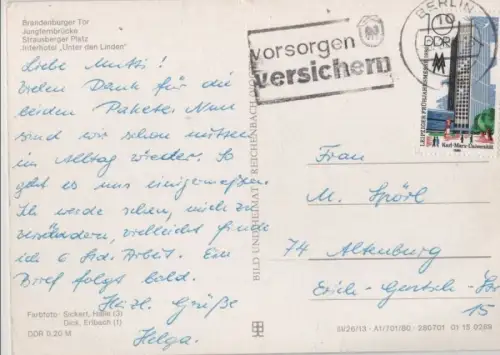 Brandenburger Tor
Jungfernbrücke
Strausberger Platz
Interhotel „Unter den Linden"
Liebe Mutti!
Vielen Dank für die
beiden Pakete. Nun
sind wir schon mitten
im Alltag wieder. So
geht es uns einigermaßen.
Ich werde sehen, mich zu
verändern, vielleicht finde
ich 6 Std. Arbeit. Ein
Brief folgt bald.
Herzl. Grüße
Helga.
Farbfoto: Sickert, Halle (3)
Dick, Erlbach (1)
DDR 0,20 M
BILD UND HEIMAT REICHENBACH
vorsorgen
versichern
BERLIN
10
DDR
MM
LEIPZIGER FRÜHJAHRSMESSE
Karl-Marx-Universität
Frau
M. Spörl
74 Altenburg
Erich-
15
III/26/13 - A1/701/80 - 280701 01 15 0269